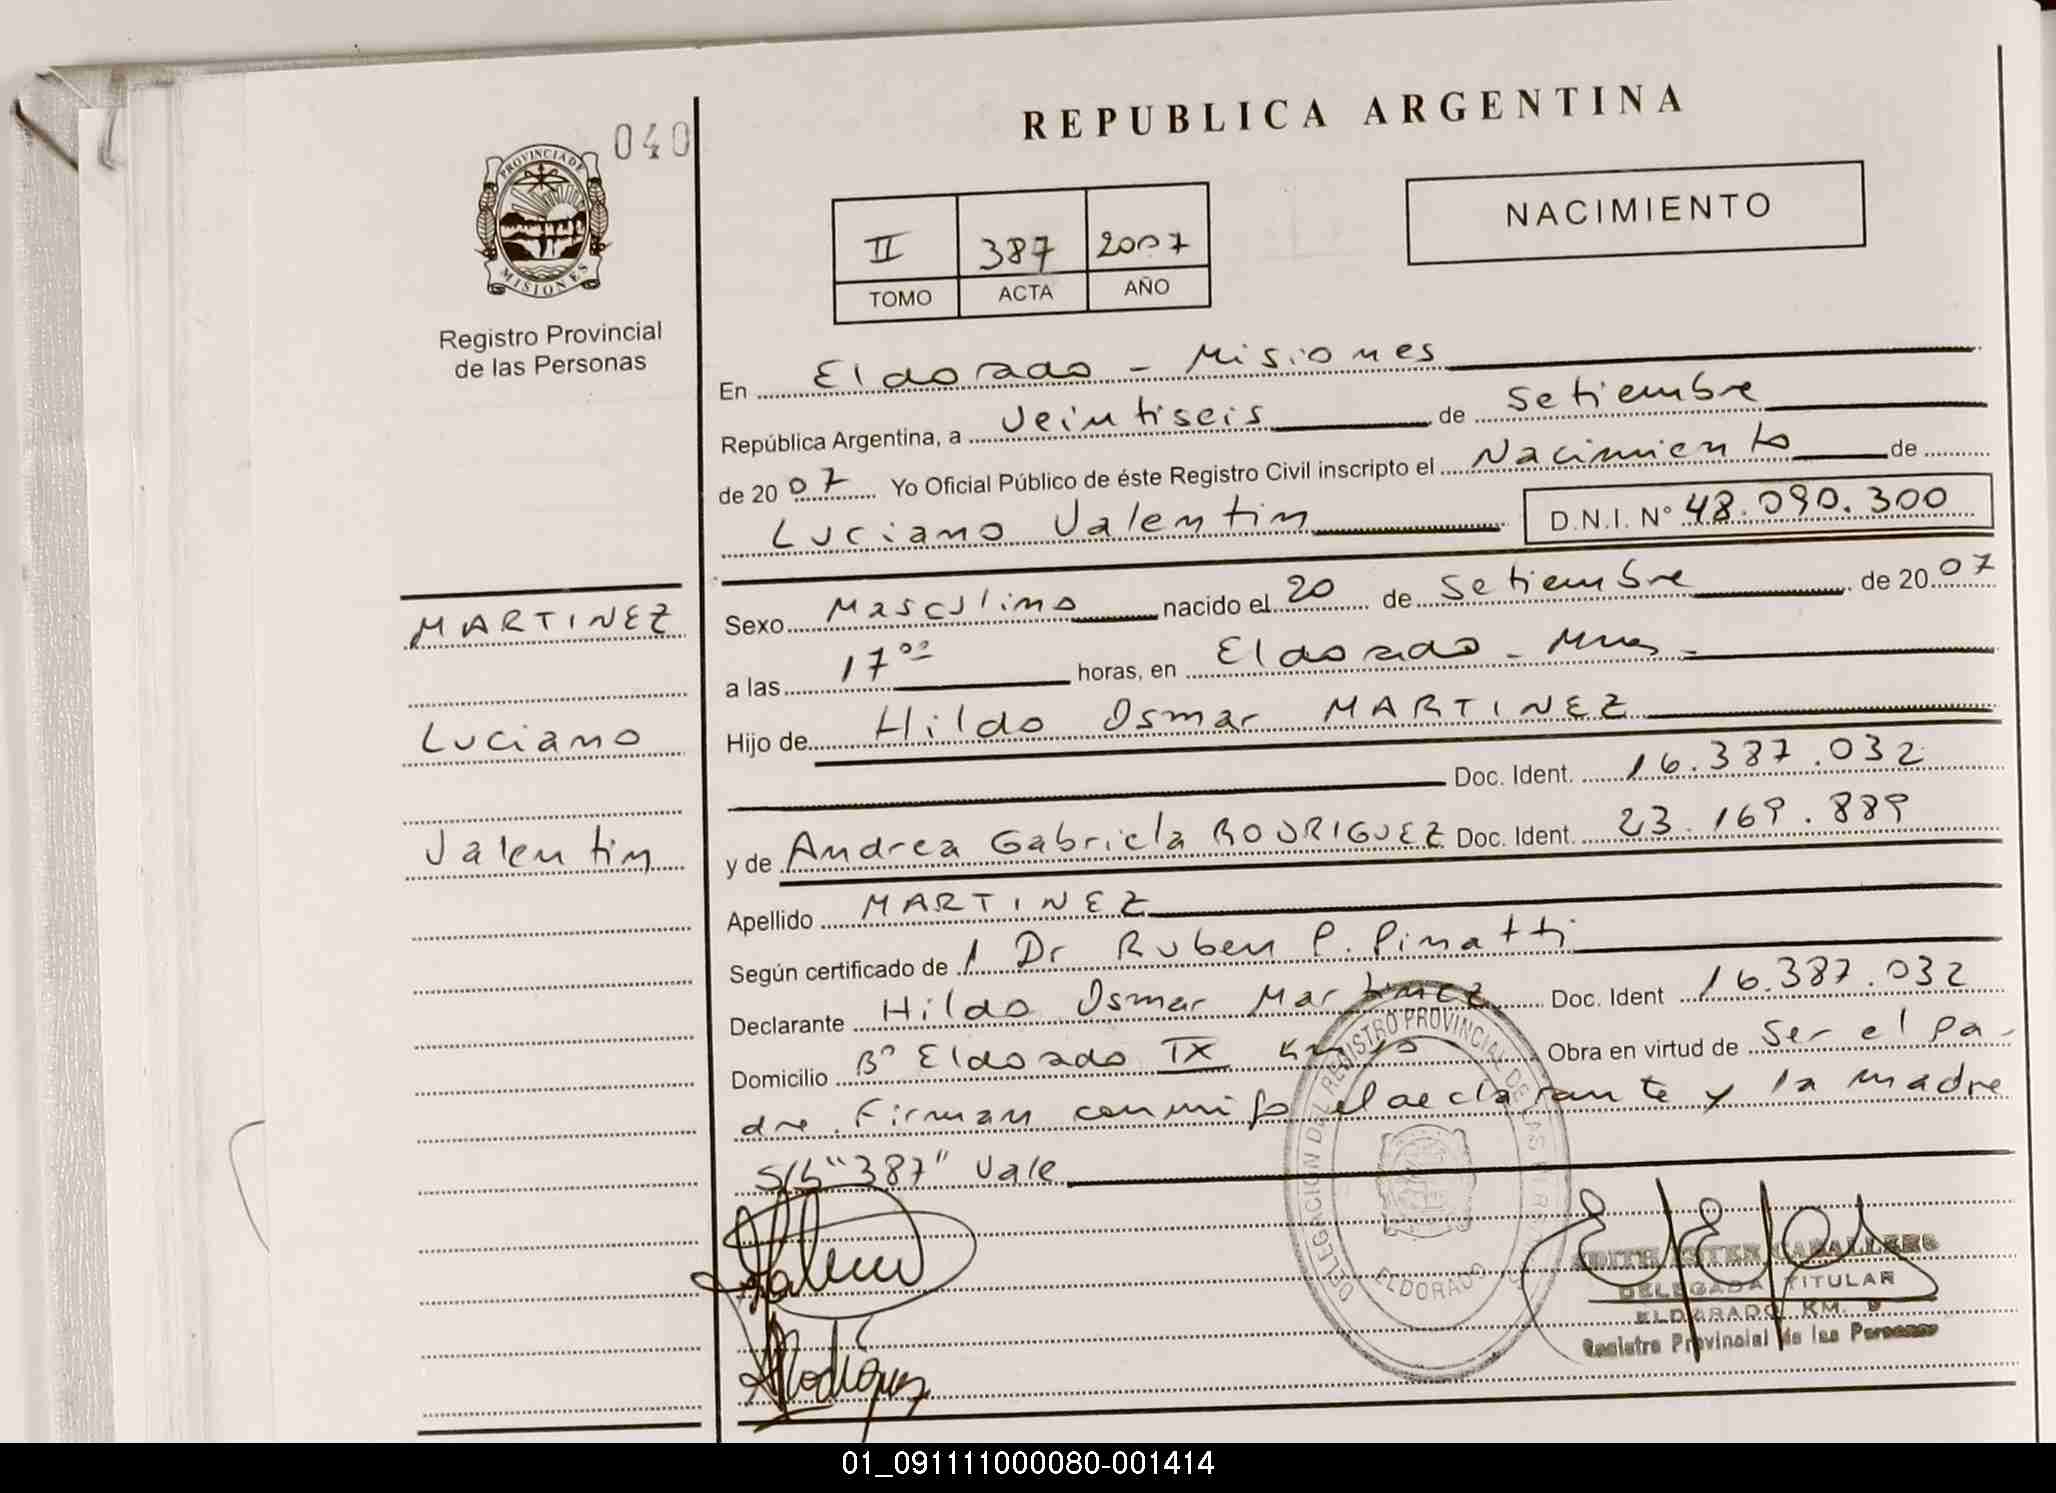 040
PROVINCIA DE
MISIONES
Registro Provincial
de las Personas
REPUBLICA ARGENTINA
II 387 2007
TOMO ACTA AÑO
NACIMIENTO
En Eldorado - Misiones
República Argentina, a veintiseis de Setiembre
de 2007 Yo Oficial Público de éste Registro Civil inscripto el Nacimiento de
Luciano Valentin D.N.I. N° 48.090.300
MARTINEZ
Luciano
Valentin
Sexo Masculino nacido el 20 de Setiembre de 2007
a las 17°° horas, en Eldorado - Mnes -
Hijo de Hildo Osmar MARTINEZ
Doc. Ident. 16.387.032
y de Andrea Gabriela RODRIGUEZ Doc. Ident. 23.169.889
Apellido MARTINEZ
Según certificado de 1 Dr Ruben P. Pinatti
Declarante Hildo Osmar Martinez Doc. Ident 16.387.032
Domicilio B° Eldorado IX Obra en virtud de Ser el pa-
dre. Firman conmigo el declarante y la madre
S/b "387" Vale
DELEGACION DEL REGISTRO PROVINCIAL DE LAS PERSONAS
ELDORADO
Rodríguez
EDITH CABALLERO
DELEGADA TITULAR
ELDORADO KM. 9
Registro Provincial de las Personas
01_091111000080-001414